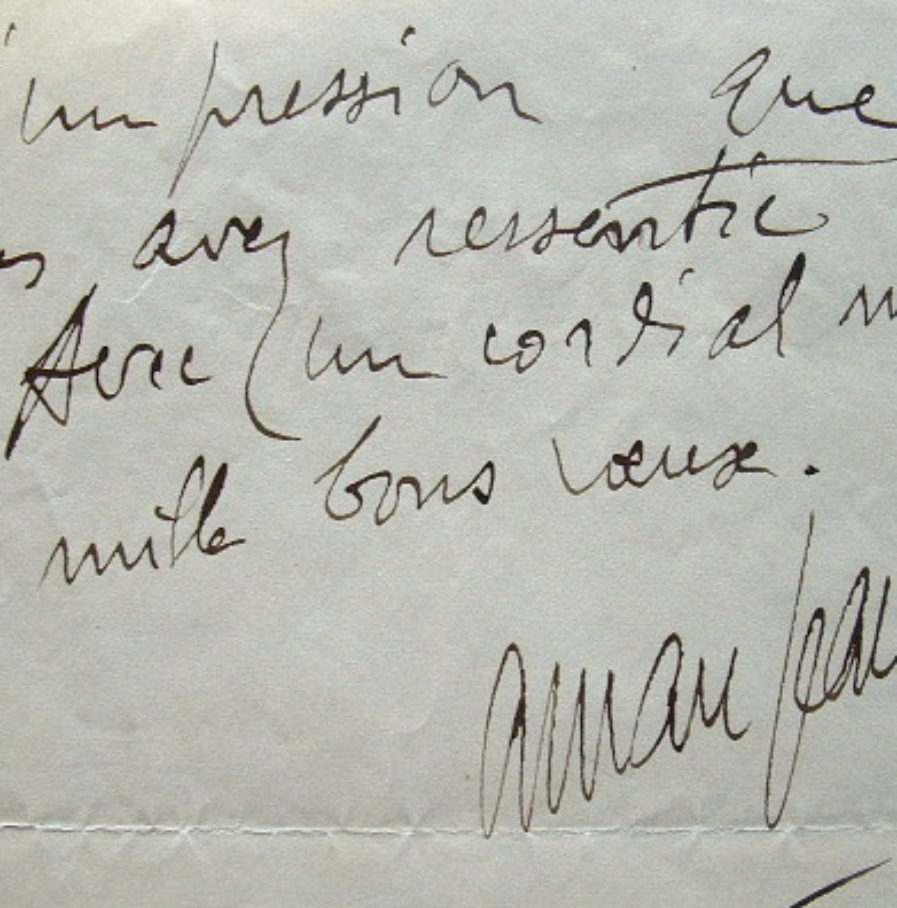 impression que
avez ressentie
Avec un cordial
mille bons vœux.
aman Jean